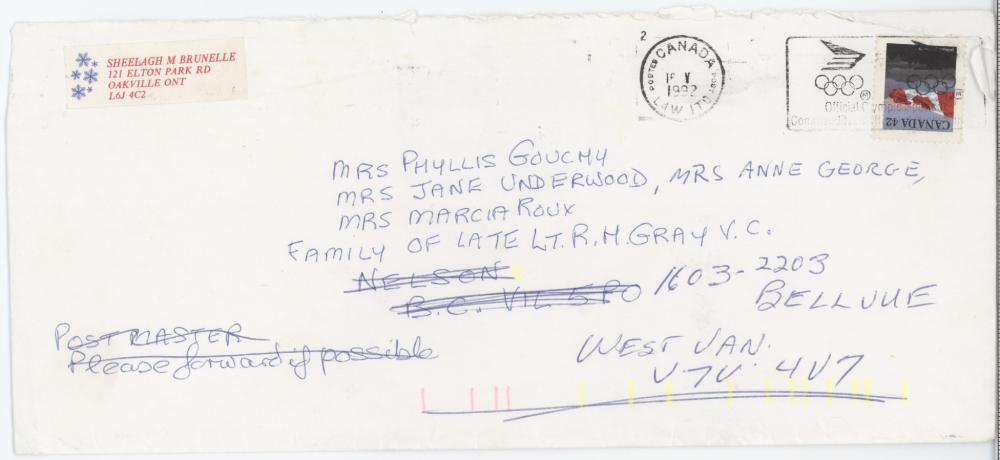 SHEELAGH M BRUNELLE
121 ELTON PARK RD
OAKVILLE ONT
L6J 4C2
2
CANADA
POSTES POST
V
1992
L4W 1T0
Official
CANADA 42
MRS PHYLLIS GOUCHY
MRS JANE UNDERWOOD, MRS ANNE GEORGE,
MRS MARCIA ROUX
FAMILY OF LATE LT. R.H. GRAY V.C.
NELSON
B.C. V1L 5P0
1603-2203
BELLVUE
WEST VAN.
V7V 4V7
POSTMASTER
Please forward if possible